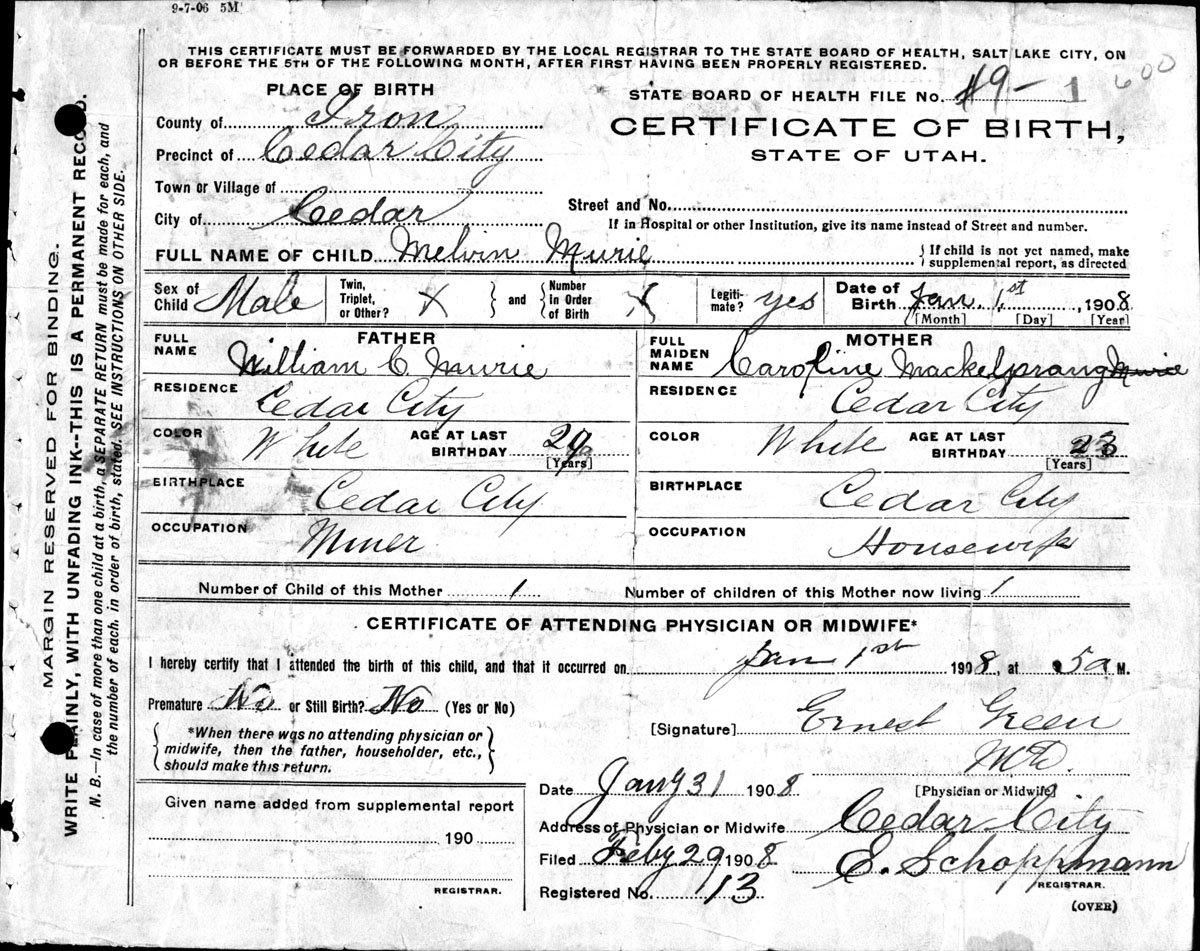 9-7-06 5M
THIS CERTIFICATE MUST BE FORWARDED BY THE LOCAL REGISTRAR TO THE STATE BOARD OF HEALTH, SALT LAKE CITY, ON
OR BEFORE THE 5TH OF THE FOLLOWING MONTH, AFTER FIRST HAVING BEEN PROPERLY REGISTERED.
600
PLACE OF BIRTH
STATE BOARD OF HEALTH FILE No. 1
County of Iron
CERTIFICATE OF BIRTH,
STATE OF UTAH.
Precinct of Cedar City
Town or Village of
City of Cedar
Street and No.
If in Hospital or other Institution, give its name instead of Street and number.
FULL NAME OF CHILD Melvin Murie
{ If child is not yet named, make
supplemental report, as directed
Sex of Child Male
Twin, Triplet, or Other? X } and { Number in Order of Birth X
Legitimate? yes
Date of Birth Jan 1st, 1908
[Month] [Day] [Year]
FATHER
FULL NAME William C. Murie
RESIDENCE Cedar City
COLOR White AGE AT LAST BIRTHDAY 29
[Years]
BIRTHPLACE Cedar City
OCCUPATION Miner
MOTHER
FULL MAIDEN NAME Caroline Mackelprang Murie
RESIDENCE Cedar City
COLOR White AGE AT LAST BIRTHDAY 23
[Years]
BIRTHPLACE Cedar City
OCCUPATION Housewife
Number of Child of this Mother 1 Number of children of this Mother now living 1
CERTIFICATE OF ATTENDING PHYSICIAN OR MIDWIFE*
I hereby certify that I attended the birth of this child, and that it occurred on Jan 1st 1908, at 5a M.
Premature No or Still Birth? No (Yes or No)
{ *When there was no attending physician or
midwife, then the father, householder, etc.,
should make this return. }
[Signature] Ernest Green
MD.
[Physician or Midwife]
Date Jany 31 1908
Address of Physician or Midwife Cedar City
Filed Feby 29 1908 E. Schoppmann
REGISTRAR.
Registered No. 113
(OVER)
Given name added from supplemental report
190
REGISTRAR.
MARGIN RESERVED FOR BINDING.
WRITE PLAINLY, WITH UNFADING INK--THIS IS A PERMANENT RECORD.
N. B.—In case of more than one child at a birth, a SEPARATE RETURN must be made for each, and
the number of each, in order of birth, stated. SEE INSTRUCTIONS ON OTHER SIDE.